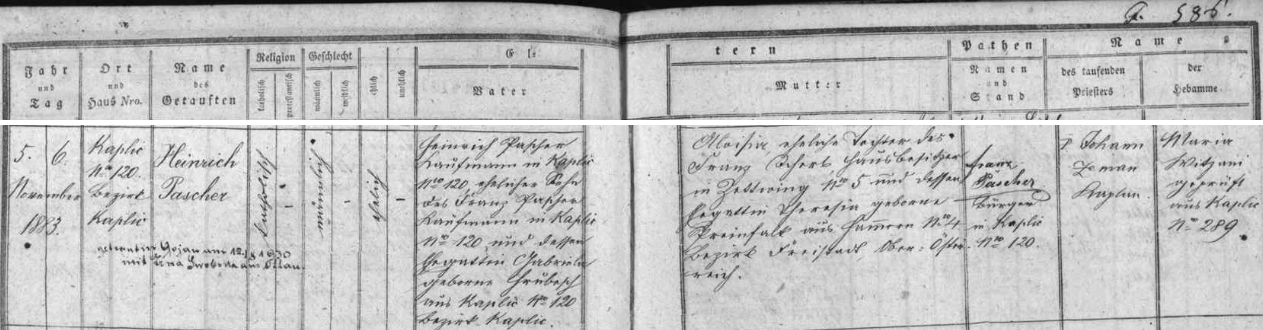 586.
El-
tern
Pathen
Name
Jahr
und
Tag
Ort
und
Haus Nro.
Name
des
Getauften
Religion
katholisch
protestantisch
Geschlecht
männlich
weiblich
ehlich
unehlich
Vater
Mutter
Namen
und
Stand
des taufenden
Priesters
der
Hebamme
5. 6.
November
1883.
Kaplic
No 120.
Bezirk
Kaplic
Heinrich
Pascher
katholisch
männlich
ehelich
Heinrich Pascher
Kaufmann in Kaplic
No 120, ehelicher Sohn
des Franz Pascher
Kaufmann in Kaplic
No 120 und dessen
Ehegattin Gabriela
geborne
aus Kaplic No 120
Bezirk Kaplic.
Aloisia eheliche Tochter des
Franz Hausbesitzer
in Zettwing No 5 und dessen
Ehegattin Theresia geborne
Preinfalk aus
Bezirk Freistadt Ober-Öster-
reich.
Franz
Pascher
Bürger
in Kaplic
No 120.
Johann
Zeman
Kaplan.
Maria
Witzani
geprüft
aus Kaplic
No 289.
getraut in Gojau am
mit Swoboda aus